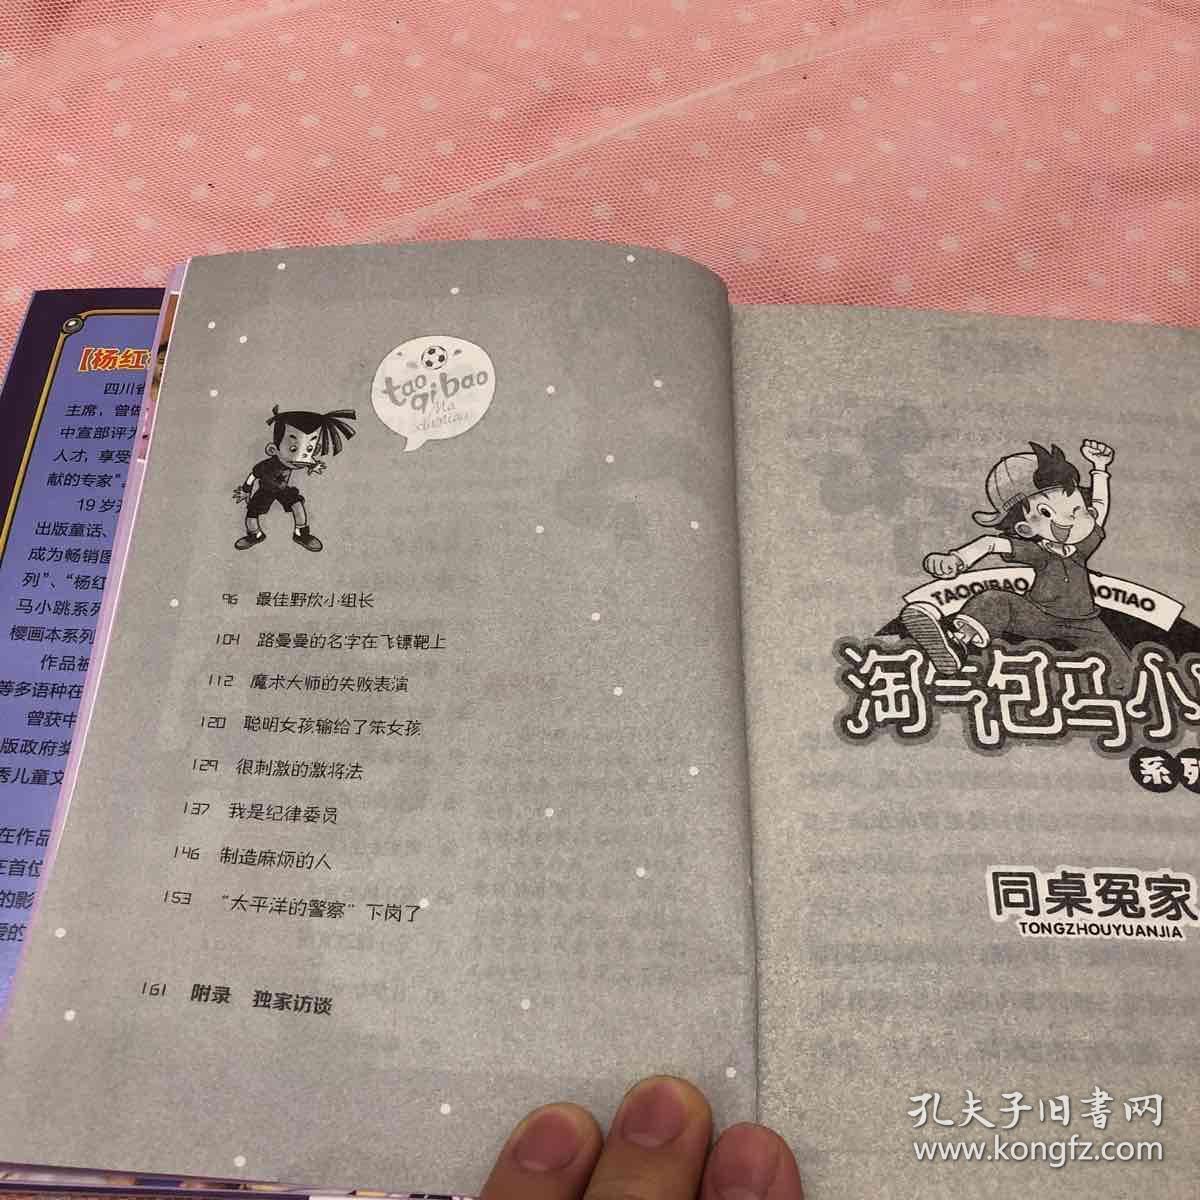 【杨红
四川省
主席，曾做
中宣部评为
人才，享受
献的专家”。
19岁
出版童话、
成为畅销图
列”、“杨红
马小跳系列
樱画本系列
作品被
等多语种在
曾获中
版政府奖
秀儿童文
在作品
在首位
的影
爱的
tao
qi bao
Ma
xiaotiao
96 最佳野炊小组长
104 路曼曼的名字在飞镖靶上
112 魔术大师的失败表演
120 聪明女孩输给了笨女孩
129 很刺激的激将法
137 我是纪律委员
146 制造麻烦的人
153 “太平洋的警察”下岗了
161 附录 独家访谈
TAOQIBAO AOTIAO
淘气包马小
系列
同桌冤家
TONGZHOUYUANJIA
孔夫子旧书网
www.kongfz.com